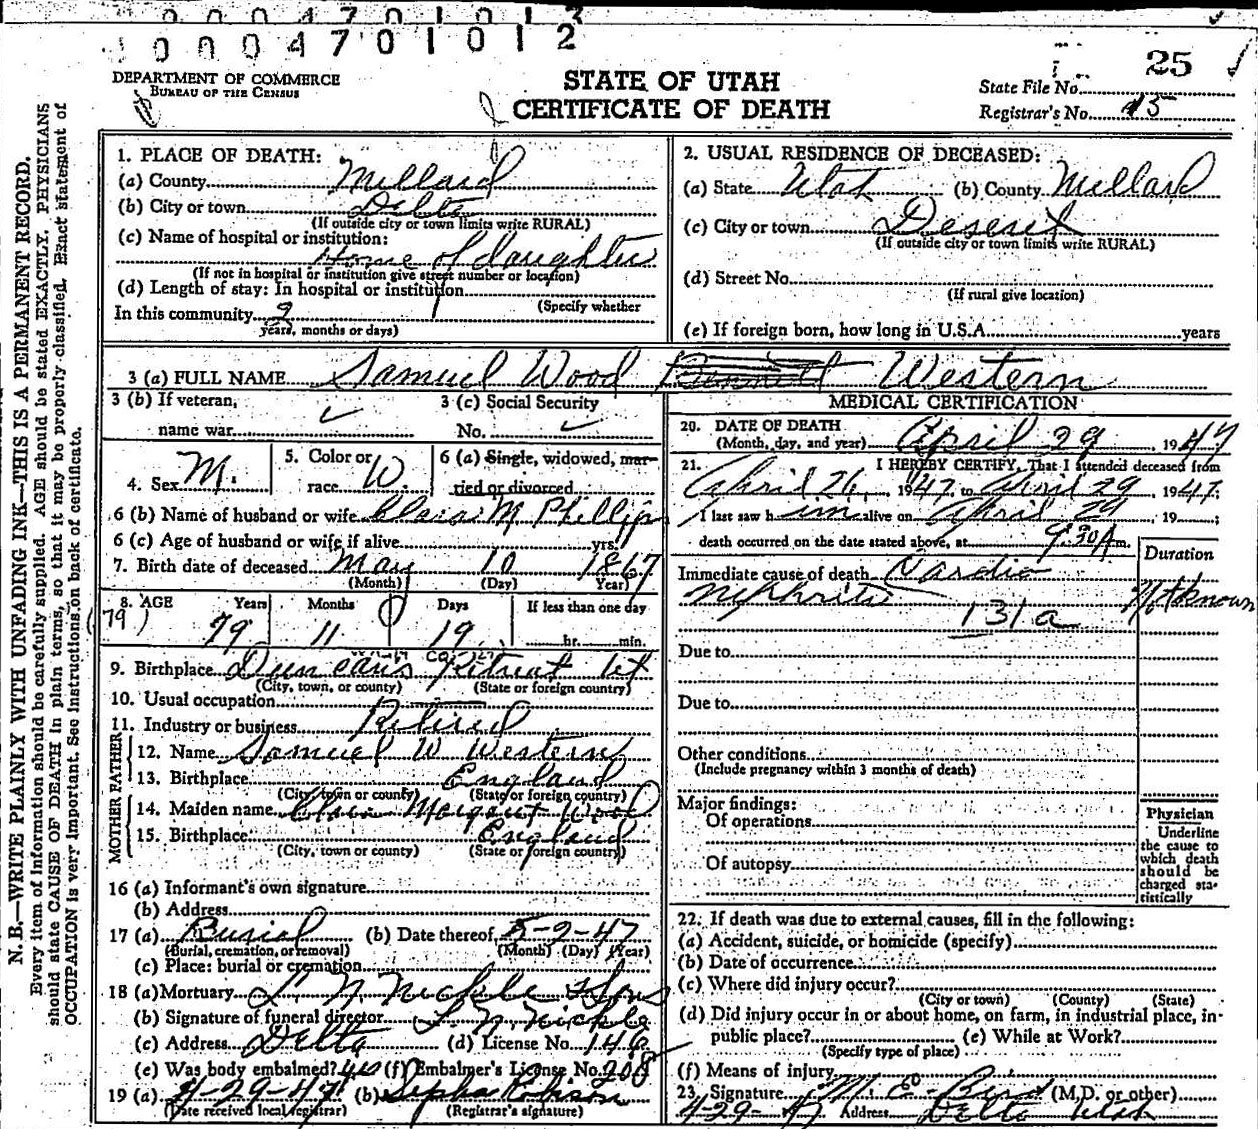 0 0 0 4 7 0 1 0 1 2
25
DEPARTMENT OF COMMERCE
BUREAU OF THE CENSUS
STATE OF UTAH
CERTIFICATE OF DEATH
State File No.
Registrar's No. 15
N. B.—WRITE PLAINLY WITH UNFADING INK—THIS IS A PERMANENT RECORD.
Every item of information should be carefully supplied. AGE should be stated EXACTLY. PHYSICIANS
should state CAUSE OF DEATH in plain terms, so that it may be properly classified. Exact statement of
OCCUPATION is very important. See instructions on back of certificate.
1. PLACE OF DEATH:
(a) County Millard
(b) City or town Delta
(If outside city or town limits write RURAL)
(c) Name of hospital or institution:
Home of daughter
(If not in hospital or institution give street number or location)
(d) Length of stay: In hospital or institution
(Specify whether
In this community 2
years, months or days)
2. USUAL RESIDENCE OF DECEASED:
(a) State Utah (b) County Millard
(c) City or town Deseret
(If outside city or town limits write RURAL)
(d) Street No.
(If rural give location)
(e) If foreign born, how long in U.S.A. years
3 (a) FULL NAME Samuel Wood Bennett Western
3 (b) If veteran,
name war
3 (c) Social Security
No.
4. Sex M.
5. Color or
race W.
6 (a) Single, widowed, mar-
ried or divorced
6 (b) Name of husband or wife Clara M Phillips
6 (c) Age of husband or wife if alive yrs.
7. Birth date of deceased May 10 1867
(Month) (Day) Year)
8. AGE Years Months Days If less than one day
79) 79 11 19 hr. min.
9. Birthplace Duncans Retreat Ut
(City, town, or county) (State or foreign country)
10. Usual occupation
11. Industry or business Retired
FATHER
12. Name Samuel W Western
13. Birthplace England
(City, town or county) (State or foreign country)
MOTHER
14. Maiden name Clara Margaret Wood
15. Birthplace England
(City, town or county) (State or foreign country)
16 (a) Informant's own signature
(b) Address
17 (a) Burial (b) Date thereof 5-2-47
(Burial, cremation, or removal) (Month) (Day) (Year)
(c) Place: burial or cremation
18 (a) Mortuary L. N. Nickle & Sons
(b) Signature of funeral director L. N. Nickle
(c) Address Delta (d) License No. 146
(e) Was body embalmed? yes (f) Embalmer's License No. 208
19 (a) 4-29-47 (b) Sepha Robison
(Date received local registrar) (Registrar's signature)
MEDICAL CERTIFICATION
20. DATE OF DEATH
(Month, day, and year) April 29 1947
21. I HEREBY CERTIFY, That I attended deceased from
April 26, 1947 to April 29, 1947;
I last saw h im alive on April 29, 19 ;
death occurred on the date stated above, at 9:30 A m.
Duration
Immediate cause of death Cardio
Nephritis Not known
131a
Due to
Due to
Other conditions
(Include pregnancy within 3 months of death)
Major findings:
Of operations
Of autopsy
Physician
Underline
the cause to
which death
should be
charged sta-
tistically
22. If death was due to external causes, fill in the following:
(a) Accident, suicide, or homicide (specify)
(b) Date of occurrence
(c) Where did injury occur?
(City or town) (County) (State)
(d) Did injury occur in or about home, on farm, in industrial place, in-
public place? (e) While at Work?
(Specify type of place)
(f) Means of injury
23. Signature M. E. Bird (M.D. or other)
4-29-47 Address Delta Utah